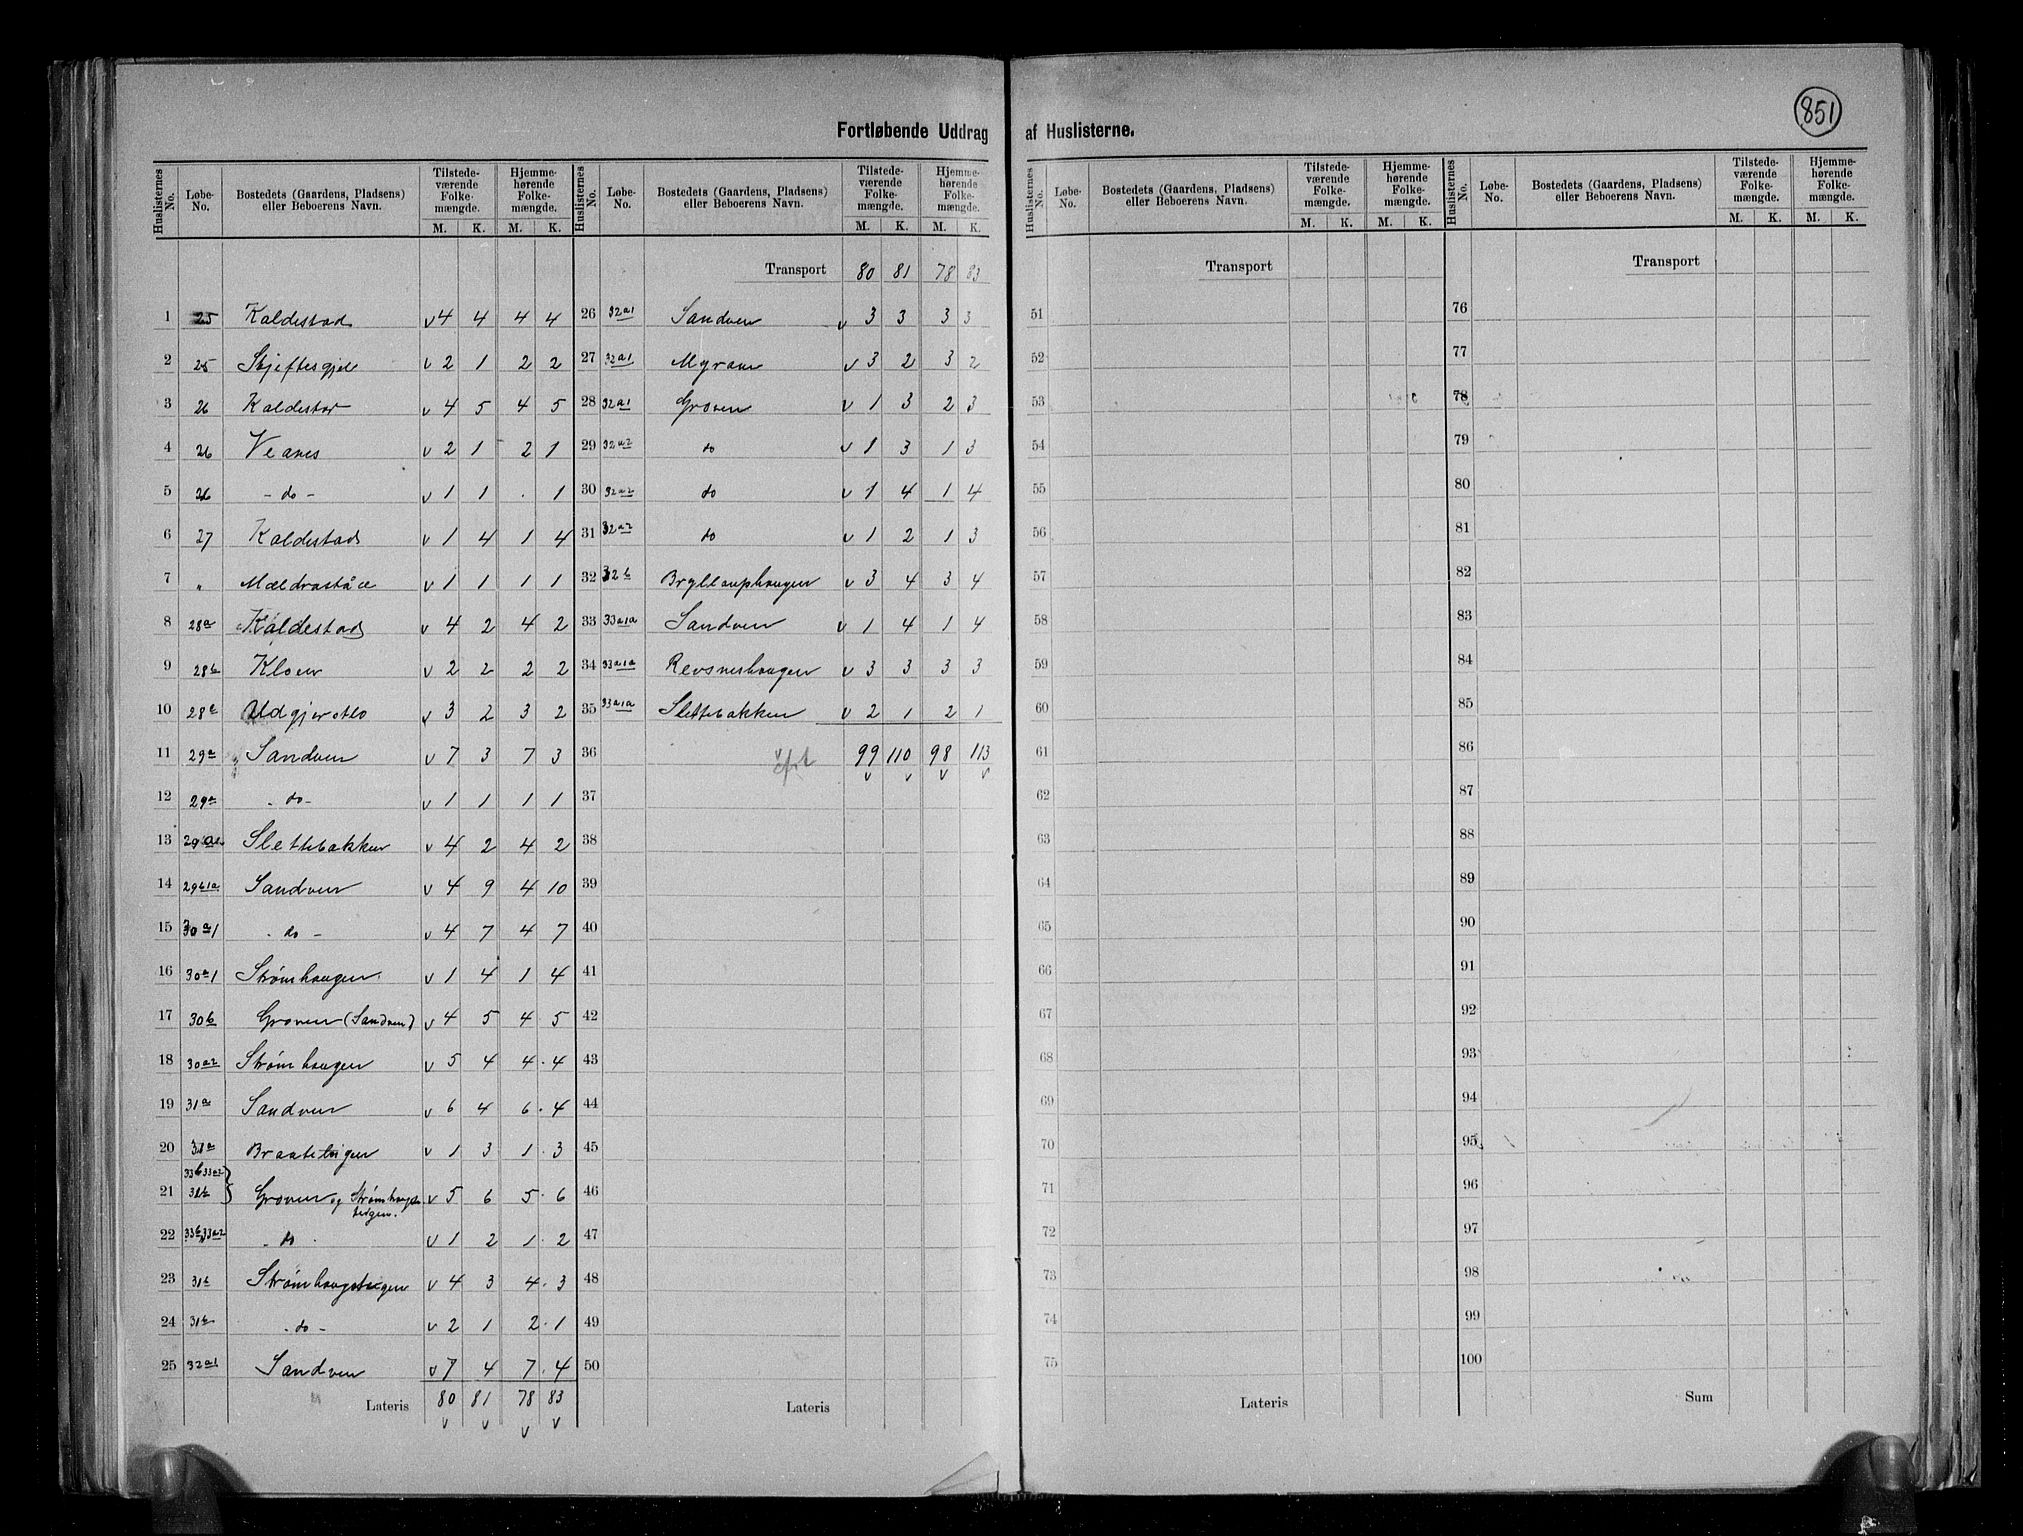 851
Fortløbende Uddrag af Huslisterne.
Huslisternes No. Løbe-No. Bostedets (Gaardens, Pladsens) eller Beboerens Navn. Tilstedeværende Folkemængde. M. K. Hjemmehørende Folkemængde. M. K.
1 25 Kaldestad v 4 4 4 4
2 25 Skjeftesgjel v 2 1 2 2
3 26 Kaldestad v 4 5 4 5
4 26 Veanes v 2 1 2 1
5 26 - do - v 1 1 . 1
6 27 Kaldestad v 1 4 1 4
7 " Mældraståa v 1 1 1 1
8 28a Kaldestad v 4 2 4 2
9 28b Kloen v 2 2 2 2
10 28b Udgjerstlo v 3 2 3 2
11 29a Sandven v 7 3 7 3
12 29a - do - v 1 1 1 1
13 Slettebakken v 4 2 4 2
14 29b1a Sandven v 4 9 4 10
15 30a1 - do - v 4 7 4 7
16 30a1 Strømhaugen v 1 4 1 4
17 30b Groven (Sandven) v 4 5 4 5
18 30a2 Strømhaugen v 5 4 4 4
19 31a Sandven v 6 4 6 4
20 31a Braateteigen v 1 3 1 3
33b 33a2
21 31b } Groven og Strømhaugsteigen. v 5 6 5 6
22 33b 33a2 - do - v 1 2 1 2
23 31b Strømhaugsteigen v 4 3 4 3
24 31b - do - v 2 1 2 1
25 32a1 Sandven v 7 4 7 4
Lateris 80 81 78 83
v v v v
Huslisternes No. Løbe-No. Bostedets (Gaardens, Pladsens) eller Beboerens Navn. Tilstedeværende Folkemængde. M. K. Hjemmehørende Folkemængde. M. K.
Transport 80 81 78 83
26 32a1 Sandven v 3 3 3 3
27 32a1 Myrane v 3 2 3 2
28 32a1 Groven v 1 3 2 3
29 32a2 do v 1 3 1 3
30 32a2 do v 1 4 1 4
31 32a2 do v 1 2 1 3
32 32b Bryllaupshaugen v 3 4 3 4
33 33a1a Sandven v 1 4 1 4
34 33a1a Revsneshaugen v 3 3 3 3
35 33a1a Slettebakken v 2 1 2 1
36 99 110 98 113
v v v v
37
38
39
40
41
42
43
44
45
46
47
48
49
50
Lateris
Huslisternes No. Løbe-No. Bostedets (Gaardens, Pladsens) eller Beboerens Navn. Tilstedeværende Folkemængde. M. K. Hjemmehørende Folkemængde. M. K.
Transport
51
52
53
54
55
56
57
58
59
60
61
62
63
64
65
66
67
68
69
70
71
72
73
74
75
Lateris
Huslisternes No. Løbe-No. Bostedets (Gaardens, Pladsens) eller Beboerens Navn. Tilstedeværende Folkemængde. M. K. Hjemmehørende Folkemængde. M. K.
Transport
76
77
78
79
80
81
82
83
84
85
86
87
88
89
90
91
92
93
94
95
96
97
98
99
100
Sum